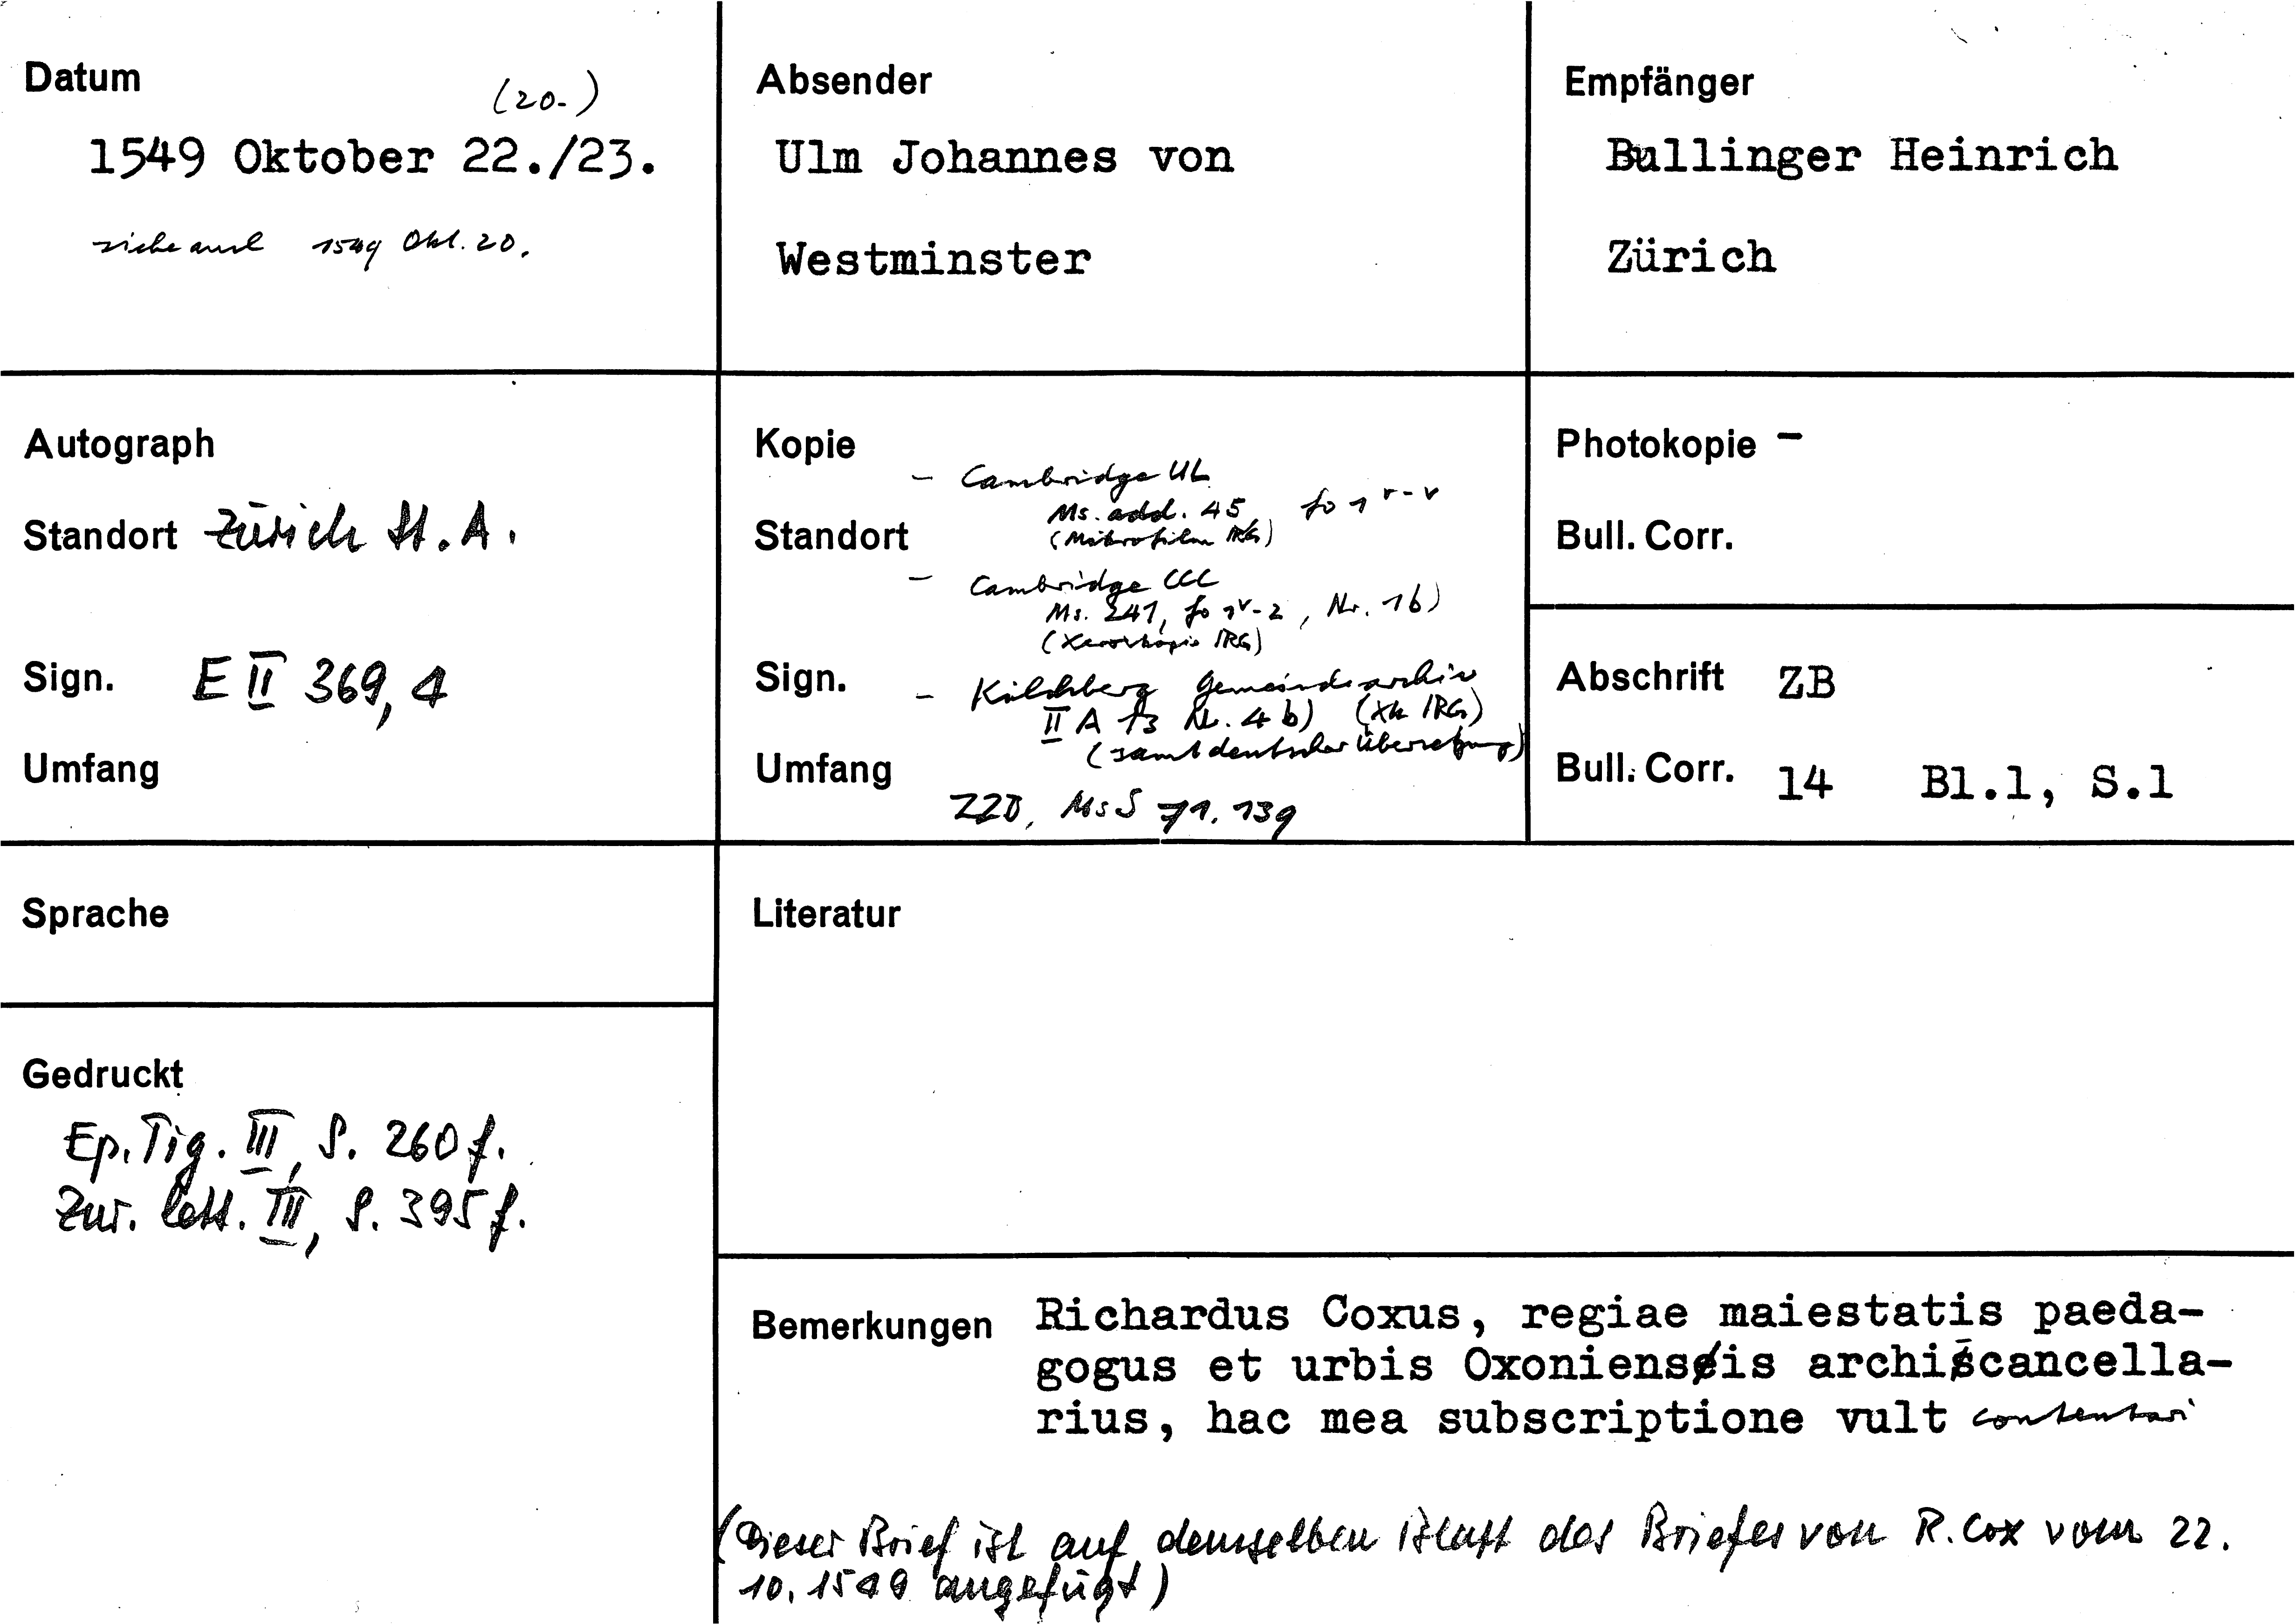 Datum
(20.-)
1549 Oktober 22./23.
siehe auch 1549 Okt. 20.
Absender
Ulm Johannes von
Westminster
Empfänger
Bullinger Heinrich
Zürich
Autograph
Standort Zürich St.A.
Sign. E II 369, 4
Umfang
Kopie
- Cambridge UL
Ms. add. 45, fo 1 r-v
(Mikrofilm IRG)
Standort
- Cambridge CCC
Ms. 241, fo 1v-2, Nr. 1b)
(Xerokopie IRG)
Sign.
- Kilchberg Gemeindearchiv
II A 13 Nr. 4 b) (Xk IRG)
(samt deutscher Übersetzung)
Umfang
ZZB, Ms S 71.139
Photokopie -
Bull. Corr.
Abschrift ZB
Bull. Corr. 14 Bl.1, S.1
Sprache
Literatur
Gedruckt
Ep. Tig. III, S. 260 f.
Zur. lett. III, S. 395 f.
Bemerkungen Richardus Coxus, regiae maiestatis paeda-
gogus et urbis Oxoniensis archicancella-
rius, hac mea subscriptione vult contentari
(Dieser Brief ist auf demselben Blatt des Briefes von R. Cox vom 22.
10. 1549 angefügt)